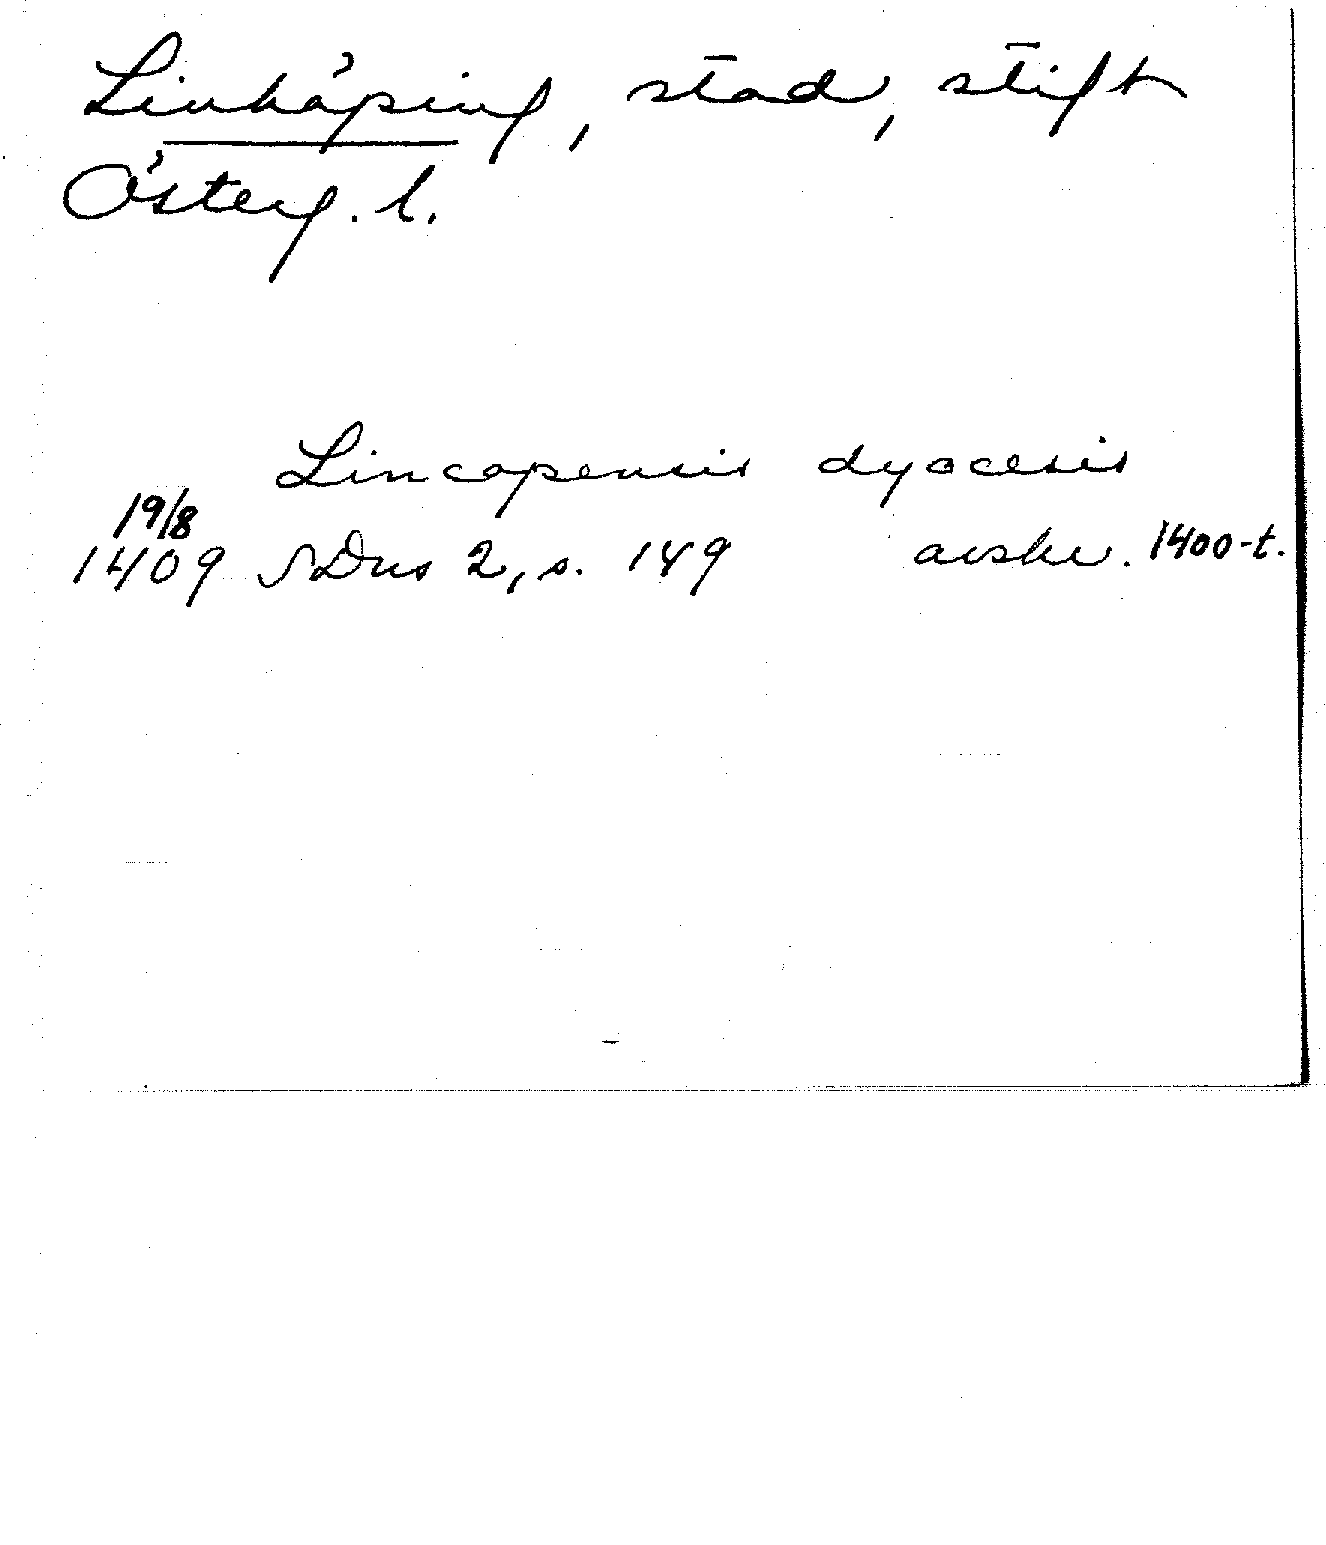 Linköping, stad, stift
Österg. l.
Lincopensis dyocesis
19/8
1409 SDns 2, s. 149 avskr. 1400-t.